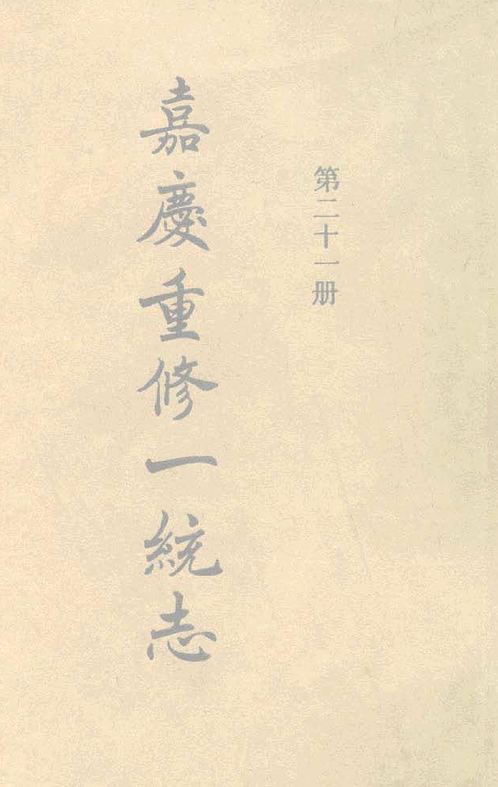 第二十一册
嘉慶重修一統志